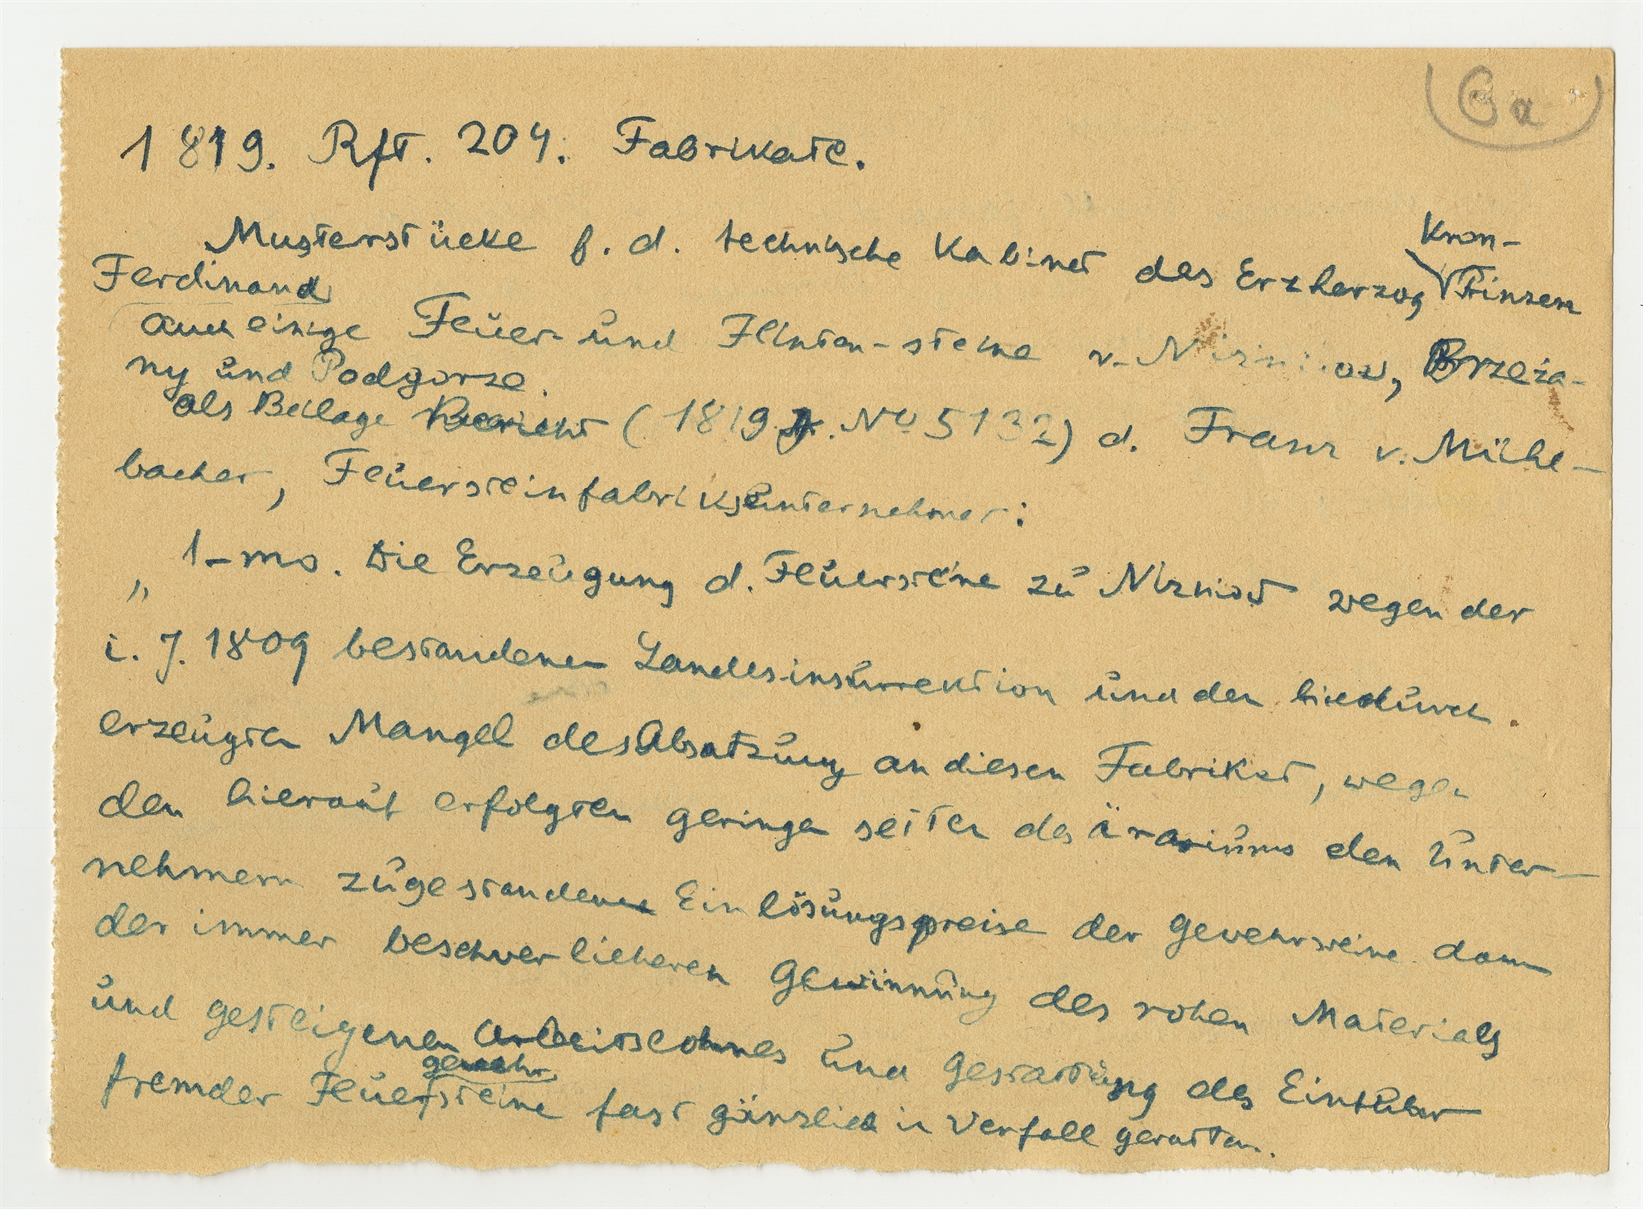 6a
1819. Rft. 204. Fabrikate.
Musterstücke f. d. technische Kabinet des Erzherzog Kron-
Prinzen
Ferdinand
auch einige Feuer- und Flinten-steine v. Nizniow, Brzeża-
ny und Podgorze.
als Beilage Bericht (1819 No 5132) d. Franz v. Mühl-
bacher, Feuersteinfabriksunternehmer:
„ 1-mo. Die Erzeugung d. Feuersteine zu Nizniow wegen der
i. J. 1809 bestandenen Landesinsurrektion und den hiedurch
erzeugten Mangel des Absatzung an diesen Fabrikat, wegen
den hierauf erfolgten geringen seiten des ärariums den Unter-
nehmern zugestandene Einlösungspreise der Gewehrsteine dann
der immer beschwerlicheren Gewinnung des rohen Materials
und gesteigenen Arbeitslohnes und Gestattung des Einfuhr
gewehr
fremder Feuersteine fast gänzlich in Verfall geraten.